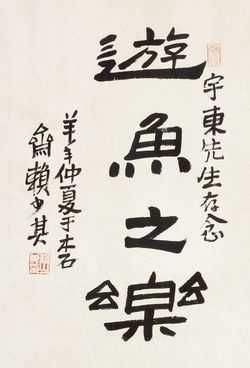 宇東先生存念
遊魚之樂
羊年仲夏于木石
齋賴少其